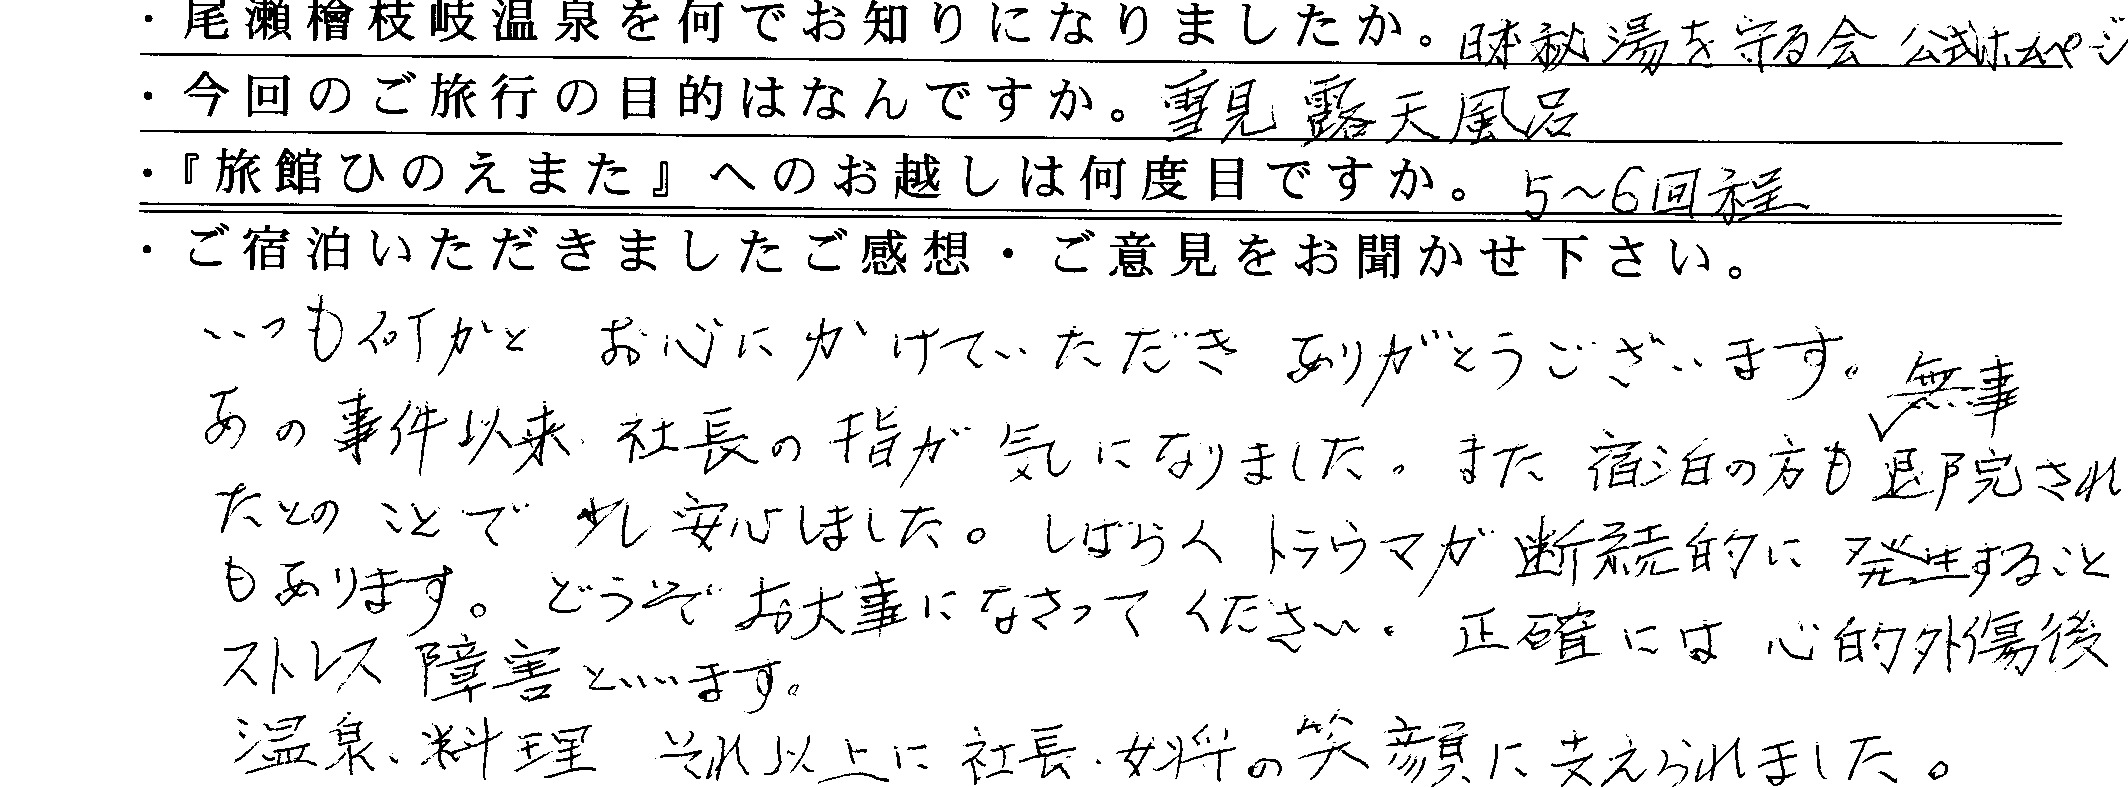 ・尾瀬檜枝岐温泉を何でお知りになりましたか。日本秘湯を守る会 公式ホームページ
・今回のご旅行の目的はなんですか。雪見露天風呂
・『旅館ひのえまた』へのお越しは何度目ですか。5〜6回程
・ご宿泊いただきましたご感想・ご意見をお聞かせ下さい。
いつも何かと お心にかけていただき ありがとうございます。
あの事件以来、社長の指が気になりました。また宿泊の方も無事退院され
たとのことで少し安心しました。しばらくトラウマが断続的に発生すること
もあります。どうぞお大事になさってください。正確には心的外傷後
ストレス障害といいます。
温泉、料理 それ以上に社長・女将の笑顔に支えられました。